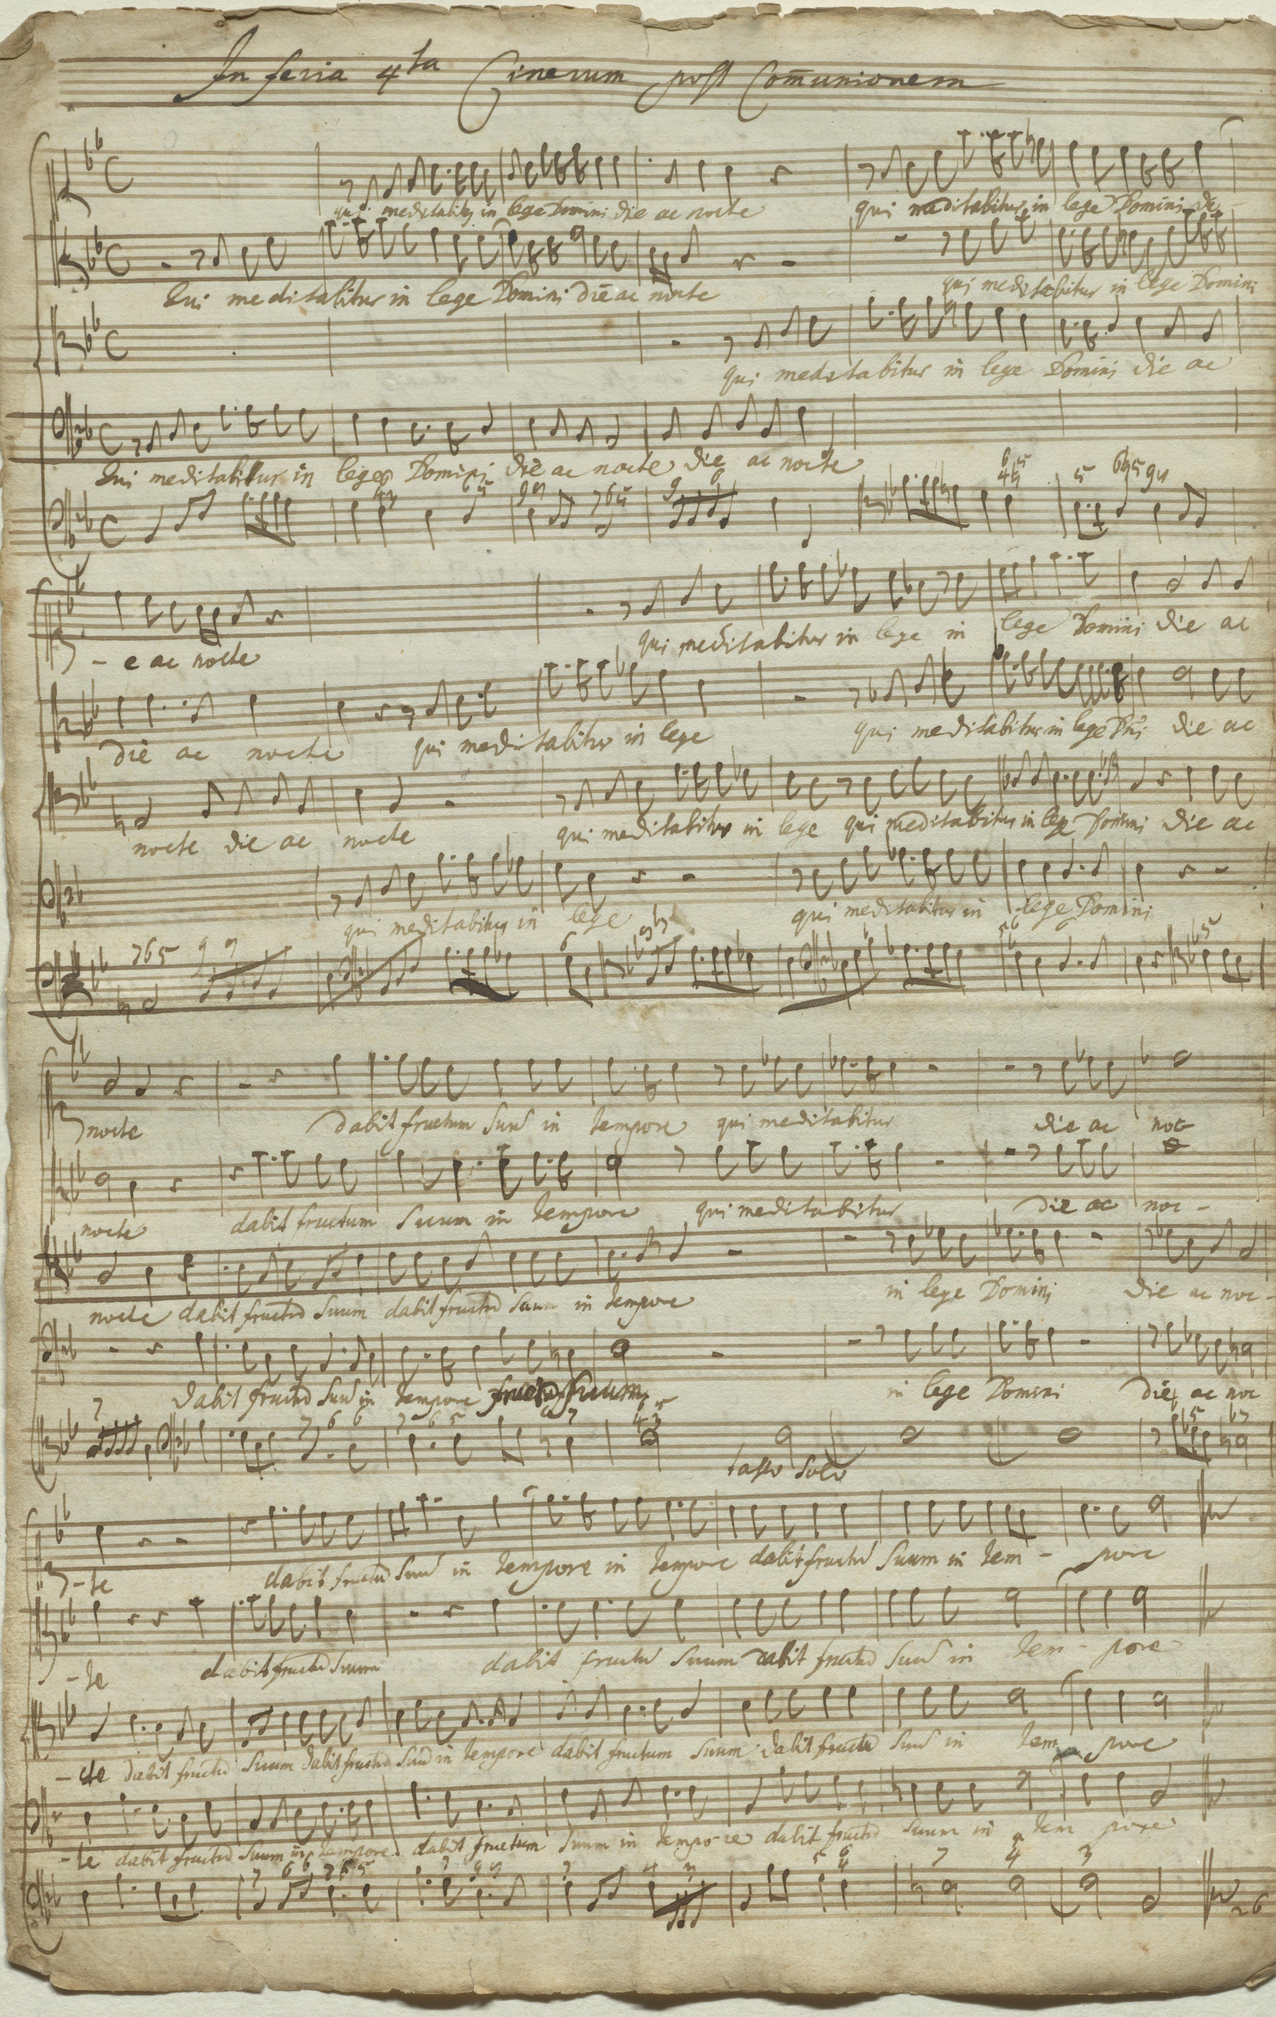 In feria 4ta Cinerum post Com̄unionem
qui meditabitur in lege Domini die ac nocte qui meditabitur in lege Domini di-
Qui meditabitur in lege Domini die ac nocte qui meditabitur in lege Domini
qui meditabitur in lege Domini die ac
Qui meditabitur in lege Domini die ac nocte die ac nocte
- e ac nocte qui meditabitur in lege in lege Domini die ac
die ac nocte qui meditabitur in lege qui meditabitur in lege Dni die ac
nocte die ac nocte qui meditabitur in lege qui meditabitur in lege Domini die ac
qui meditabitur in lege qui meditabitur in lege Domini
7 6 5 9
nocte dabit fructum suū in tempore qui meditabitur die ac noc
nocte dabit fructum suum in tempore qui meditabitur die ac noc -
nocte dabit fructū suum dabit fructū suum in tempore in lege Domini die ac noc -
dabit fructū suū in tempore fructū suum in lege Domini die ac noc
tasto solo
-te dabit fructū suū in tempore in tempore dabit fructū suum in tem - pore
-te dabit fructū suum dabit fructū suum dabit fructū suū in tem - pore
-cte dabit fructū suum dabit fructū suū in tempore dabit fructum suum dabit fructū suū in tem pore
-te dabit fructū suum in tempore dabit fructum suum in tempore dabit fructū suum in tem pore
7 4 3
26